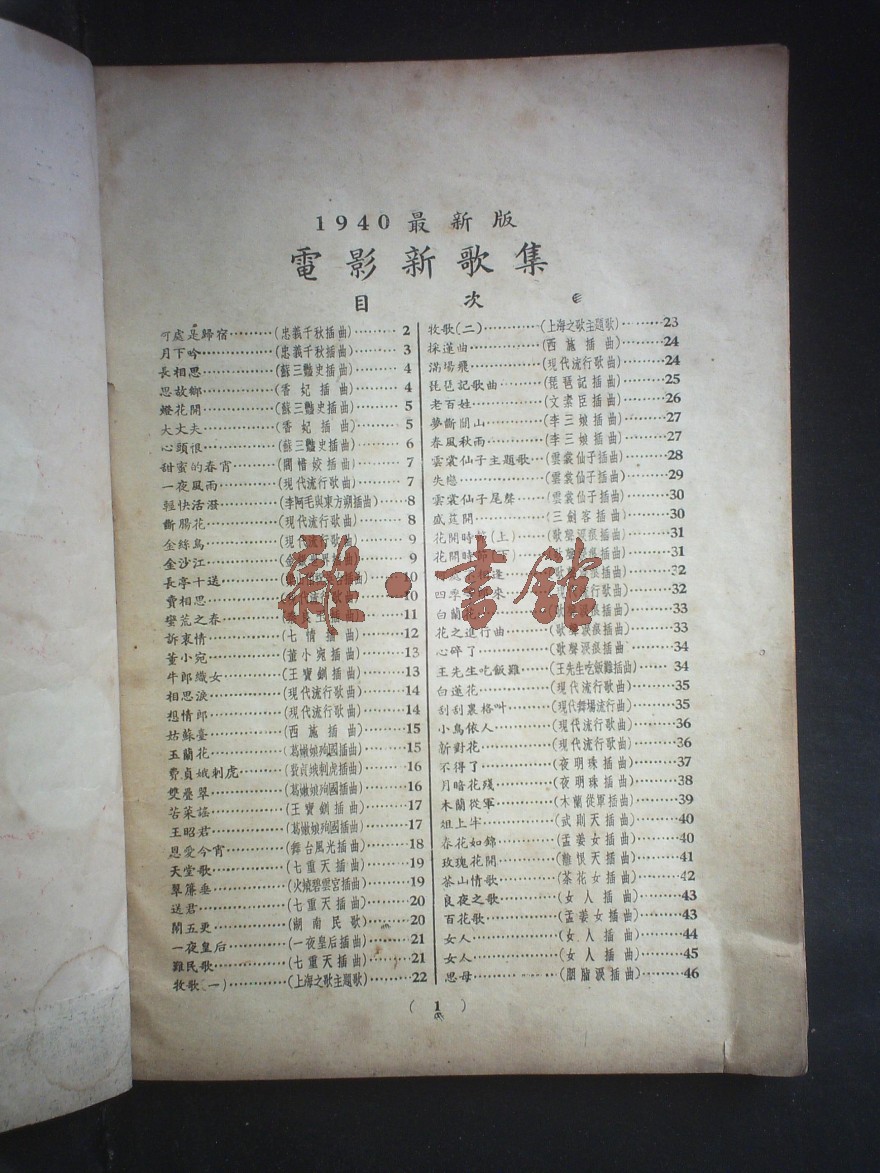 1940最新版
電影新歌集
目 次
何處是歸宿………(忠義千秋插曲)………2
月下吟…………(忠義千秋插曲)………3
長相思…………(蘇三艷史插曲)………4
思故鄉…………(香妃插曲)………4
燈花開…………(蘇三艷史插曲)………5
大丈夫…………(香妃插曲)………5
心頭恨…………(蘇三艷史插曲)………6
甜蜜的春宵………(閻惜姣插曲)………7
一夜風雨………(現代流行歌曲)………7
輕快活潑………(李阿毛與東方朔插曲)……8
斷腸花…………(現代流行歌曲)………8
金絲鳥…………(現代流行歌曲)………9
金沙江…………插曲)………9
長亭十送………插曲)………10
費相思…………代流行歌曲)………10
蠻荒之春………插曲)………11
訴衷情…………(七情插曲)………12
董小宛…………(董小宛插曲)………13
牛郎織女………(王寶釧插曲)………13
相思淚…………(現代流行歌曲)………14
想情郎…………(現代流行歌曲)………14
姑蘇臺…………(西施插曲)………15
玉蘭花…………(葛嫩娘殉國插曲)………15
費貞娥刺虎………(費貞娥刺虎插曲)………16
雙疊翠…………(葛嫩娘殉國插曲)………16
苦菜謠…………(王寶釧插曲)………17
王昭君…………(葛嫩娘殉國插曲)………17
恩愛今宵………(舞台風光插曲)………18
天堂歌…………(七重天插曲)………19
翠簾垂…………(火燒碧雲宮插曲)………19
送君……………(七重天插曲)………20
鬧五更…………(湖南民歌)………20
一夜皇后………(一夜皇后插曲)………21
難民歌…………(七重天插曲)………21
牧歌(一)………(上海之歌主題歌)………22
牧歌(二)…………(上海之歌主題歌)………23
採蓮曲…………(西施插曲)………24
滿場飛…………(現代流行歌曲)………24
琵琶記歌曲………(琵琶記插曲)………25
老百姓…………(文素臣插曲)………26
夢斷關山………(李三娘插曲)………27
春風秋雨………(李三娘插曲)………27
雲裳仙子主題歌……(雲裳仙子插曲)………28
失戀……………(雲裳仙子插曲)………29
雲裳仙子尾聲………(雲裳仙子插曲)………30
盛筵開…………(三劍客插曲)………30
花開時節(上)……(歌聲淚痕插曲)………31
花開時節(下)……淚痕插曲)………31
相逢…………淚痕插曲)………32
四季…來………流行歌曲)………32
白蘭花…………淚痕插曲)………33
花之進行曲………(歌聲淚痕插曲)………33
心碎了…………(歌聲淚痕插曲)………34
王先生吃飯難……(王先生吃飯難插曲)……34
白蓮花…………(現代流行歌曲)………35
刮刮裏格叫………(現代舞場流行曲)………35
小鳥依人………(現代流行歌曲)………36
新對花…………(現代流行歌曲)………36
不得了…………(夜明珠插曲)………37
月暗花殘………(夜明珠插曲)………38
木蘭從軍………(木蘭從軍插曲)………39
俎上羊…………(武則天插曲)………40
春花如錦………(孟姜女插曲)………40
玫瑰花開………(離恨天插曲)………41
茶山情歌………(茶花女插曲)………42
良夜之歌………(女人插曲)………43
百花歌…………(孟姜女插曲)………43
女人……………(女人插曲)………44
女人……………(女人插曲)………45
思母……………(胭脂淚插曲)………46
(1)
雜·書館